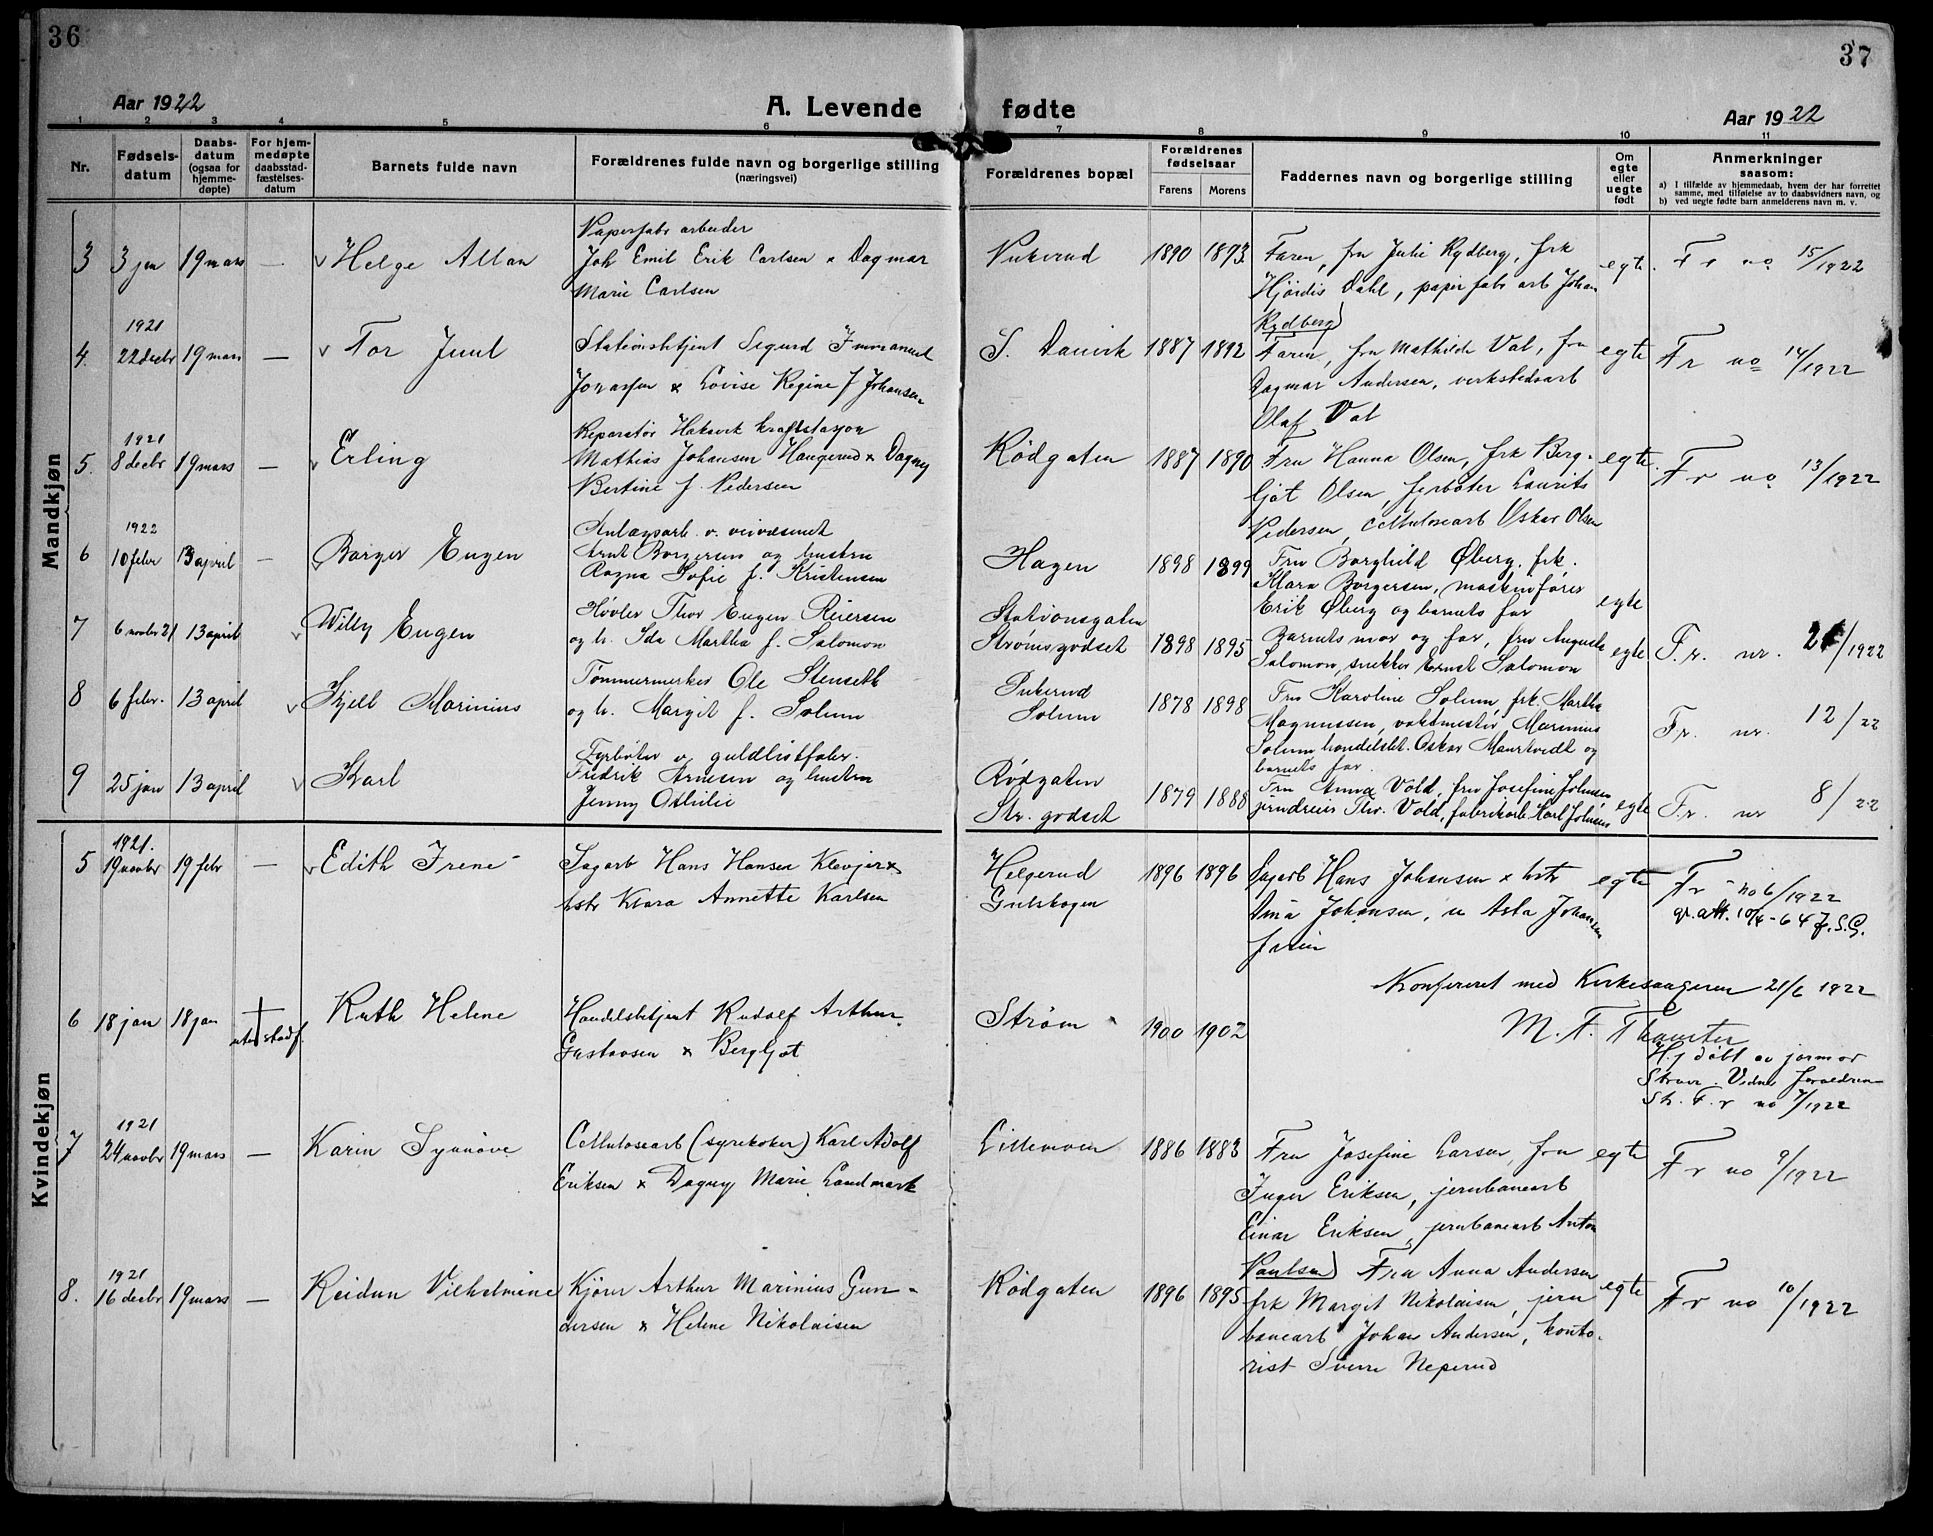 36
37
Aar 1922
A. Levende fødte
Aar 1922
1 2 3 4 5 6 7 8 9 10 11
Nr.
Fødsels-
datum
Daabs-
datum
(ogsaa for
hjemme-
døpte)
For hjem-
medøpte
daabsstad-
fæstelses-
datum
Barnets fulde navn
Forældrenes fulde navn og borgerlige stilling
(næringsvei)
Forældrenes bopæl
Forældrenes
fødselsaar
Farens Morens
Faddernes navn og borgerlige stilling
Om
egte
eller
uegte
født
Anmerkninger
saasom:
a) I tilfælde av hjemmedaab, hvem der har forrettet
samme, med tilføielse av to daabsvidners navn, og
b) ved uegte fødte barn anmelderens navn m. v.
Mandkjøn
3 3 jan 19 mars — v Helge Allan
Papirfabr arbeider
Joh Emil Erik Carlsen x Dagmar
Marie Carlsen
1890 1873
Faren, fru Julie Rydberg, frk
Hjördis Dahl, papirfabr arb Johan
Rydberg
egte
Fr no 15/1922
1921
4. 22 decbr 19 mars — v Tor Juul
Stationsbtjent Sigurd Immanuel
Jonassen x Lovise Regine f Johansen
S. Danvik 1887 1892
Faren, fru Mathilde Val, fru
Dagmar Andersen, verkstedsarb
Olaf Val
egte
Fr no 14/1922
1921
5. 8 decbr 19 mars — v Erling
Reparatör Hakavik kraftstasjon
Mathias Johansen Haugerud x Dagny
Bertine f. Pedersen
Rödgaten 1887 1890
Fru Hanna Olsen, frk Berg-
ljot Olsen, fyrböter Laurits
Pedersen, cellulosearb Oskar Olsen
egte
Fr no 13/1922
1922
6 10 febr 13 april — Borger Eugen
Anlægsarb. v. veivæsenet
Arnt Borgersen og hustru
Ragna Sofie f. Kristensen
Hagen 1898 1899
Fru Borghild Øberg, frk.
Klara Borgersen, maskinfører
Erik Øberg og barnets far
egte
7 6 novbr 21 13 april v Willy Eugen
Høvler Thor Eugen Reiersen
og h. Ida Martha f. Salomon
Stationsgaten
Strømsgodset 1898 1895
Barnets mor og far, fru Augusta
Salomon, snikker Ernst Salomon
egte
F.r. nr. 21/1922
8 6 febr. 13 april v Kjell Marinius
Tømmermerker Ole Stenseth
og h. Margit f. Solum
Pukerud
Solum 1878 1898
Fru Karoline Solum, frk. Martha
Magnussen, vaktmester Marinius
Solum handelsbt. Oskar Maurtvedt og
barnets far.
Fr. nr. 12/22
9 25 jan 13 april v Karl
Fyrbøter v. guldlistfabr.
Fredrik Arnesen og hustru
Jenny Othilie
Rödgaten
Str. godset 1879 1888
Fru Anna Vold, fru Josefine Johnsen
jerndreier Thv. Vold, fabrikarb Karl Johnsen
egte
F.r. nr 8/22
Kvindekjøn
1921.
5 19 novbr 19 febr — v Edith Irene
Sagarb Hans Hansen Klevjer x
hstr Klara Annette Karlsen
Helgerud
Gulskogen 1896 1896
Sagarb Hans Johansen x hstr
Ama Johansen, u Asta Johansen
farin
egte
Fr no 6/1922
qv. att. 10/4-64 J.S.G.
Konfereret med Kirkesangeren 21/6 1922
6 18 jan 18 jan Ruth Helene
uten stadf.
Handelsbtjent Rudolf Arthur
Gustavsen x Bergljot
Ström 1900 1902
M. F. Thaurter
Hj döbt av jormor
Vidner Forældrene
St. F. r no 7/1922
1921
7 24 novbr 19 mars — Karin Synnöve
Cellulosearb (syrekoker) Karl Adolf
Eriksen x Dagny Marie Landmark
Lillemoen 1886 1883
Fru Josefine Larsen, fru
Inger Eriksen, jernbanearb
Einar Eriksen, jernbanearb Anton
Paulsen
egte
Fr no 9/1922
1921
8. 16 decbr 19 mars — Reidun Vilhelmine
Kjører Arthur Marinius Gun-
dersen x Helene Nikolaisen
Rödgaten 1896 1895
Fru Anna Andersen
frk Margit Nikolaisen, jern
banearb Johan Andersen, konto-
rist Sverre Neperud
egte
Fr no 10/1922